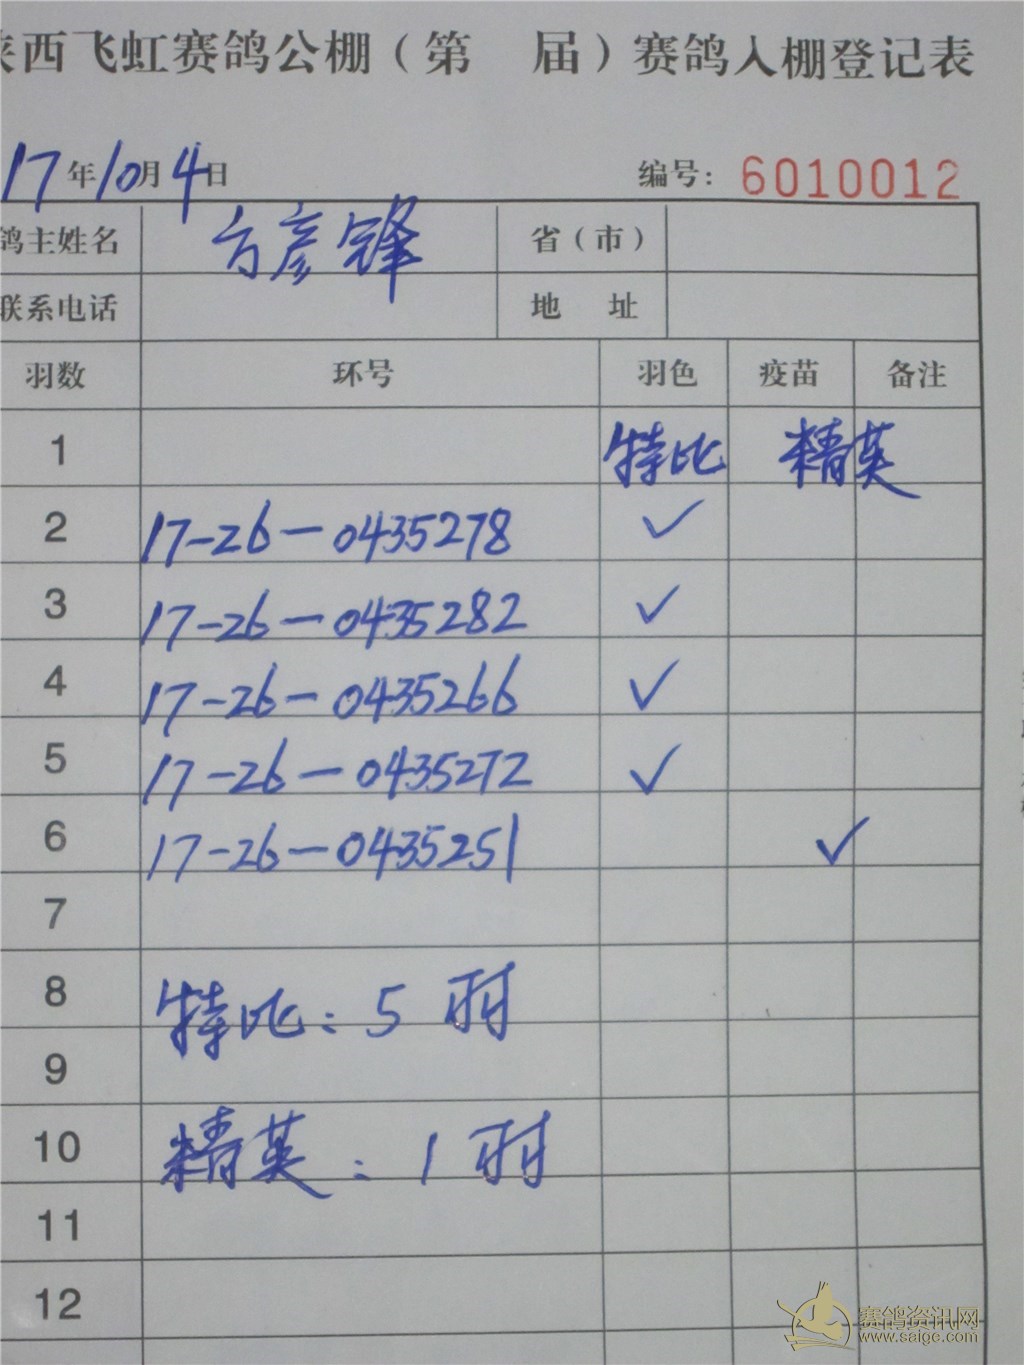 陕西飞虹赛鸽公棚（第 届）赛鸽入棚登记表
17年10月4日 编号：6010012
鸽主姓名 方彦锋 省（市）
联系电话 地 址
羽数 环号 羽色 疫苗 备注
1 特比 精英
2 17-26-0435278 ✓
3 17-26-0435282 ✓
4 17-26-0435266 ✓
5 17-26-0435272 ✓
6 17-26-0435251 ✓
7
8 特比：5羽
9
10 精英：1羽
11
12
赛鸽资讯网
www.saige.com